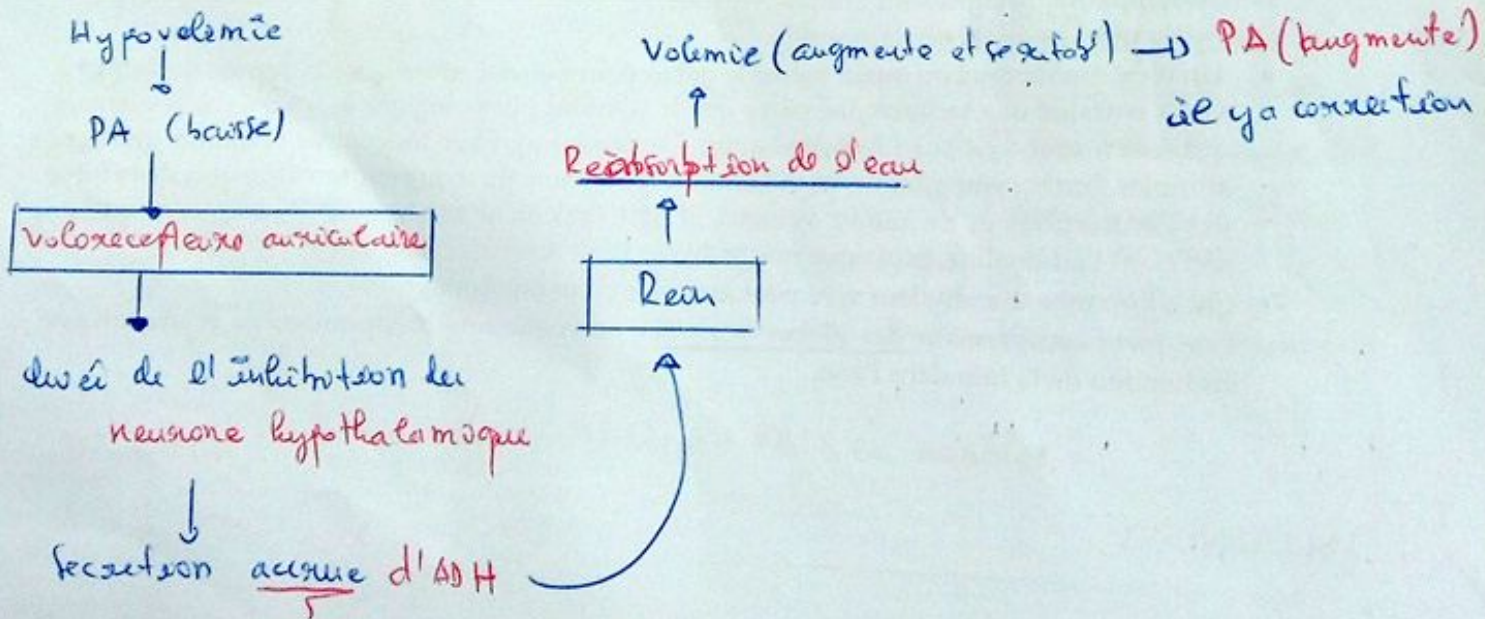 Hypovolemie
PA (baisse)
volorecepteurs auriculaire
levée de l'inhibition des
neurone hypothalamique
Secretion accrue d'ADH
Rein
Reàbsorption de l'eau
Volemie (augmente et se
PA (augmente)
il y a correction